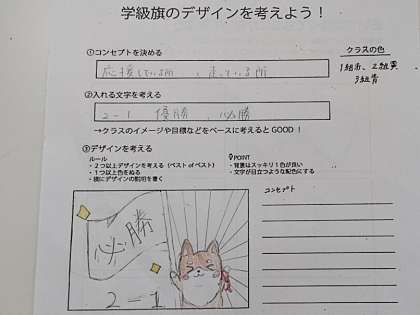 学級旗のデザインを考えよう！
①コンセプトを決める
応援している所 、 走っている所
クラスの色
1組赤、2組黄
3組青
②入れる文字を考える
2－1 優勝 、必勝
→クラスのイメージや目標などをベースに考えるとGOOD！
③デザインを考える
ルール
・2つ以上デザインを考える（ベスト of ベスト）
・1つ以上色をぬる
・横にデザインの説明を書く
POINT
・背景はスッキリ1色が良い
・文字が目立つような配色にする
コンセプト
必勝
2－1